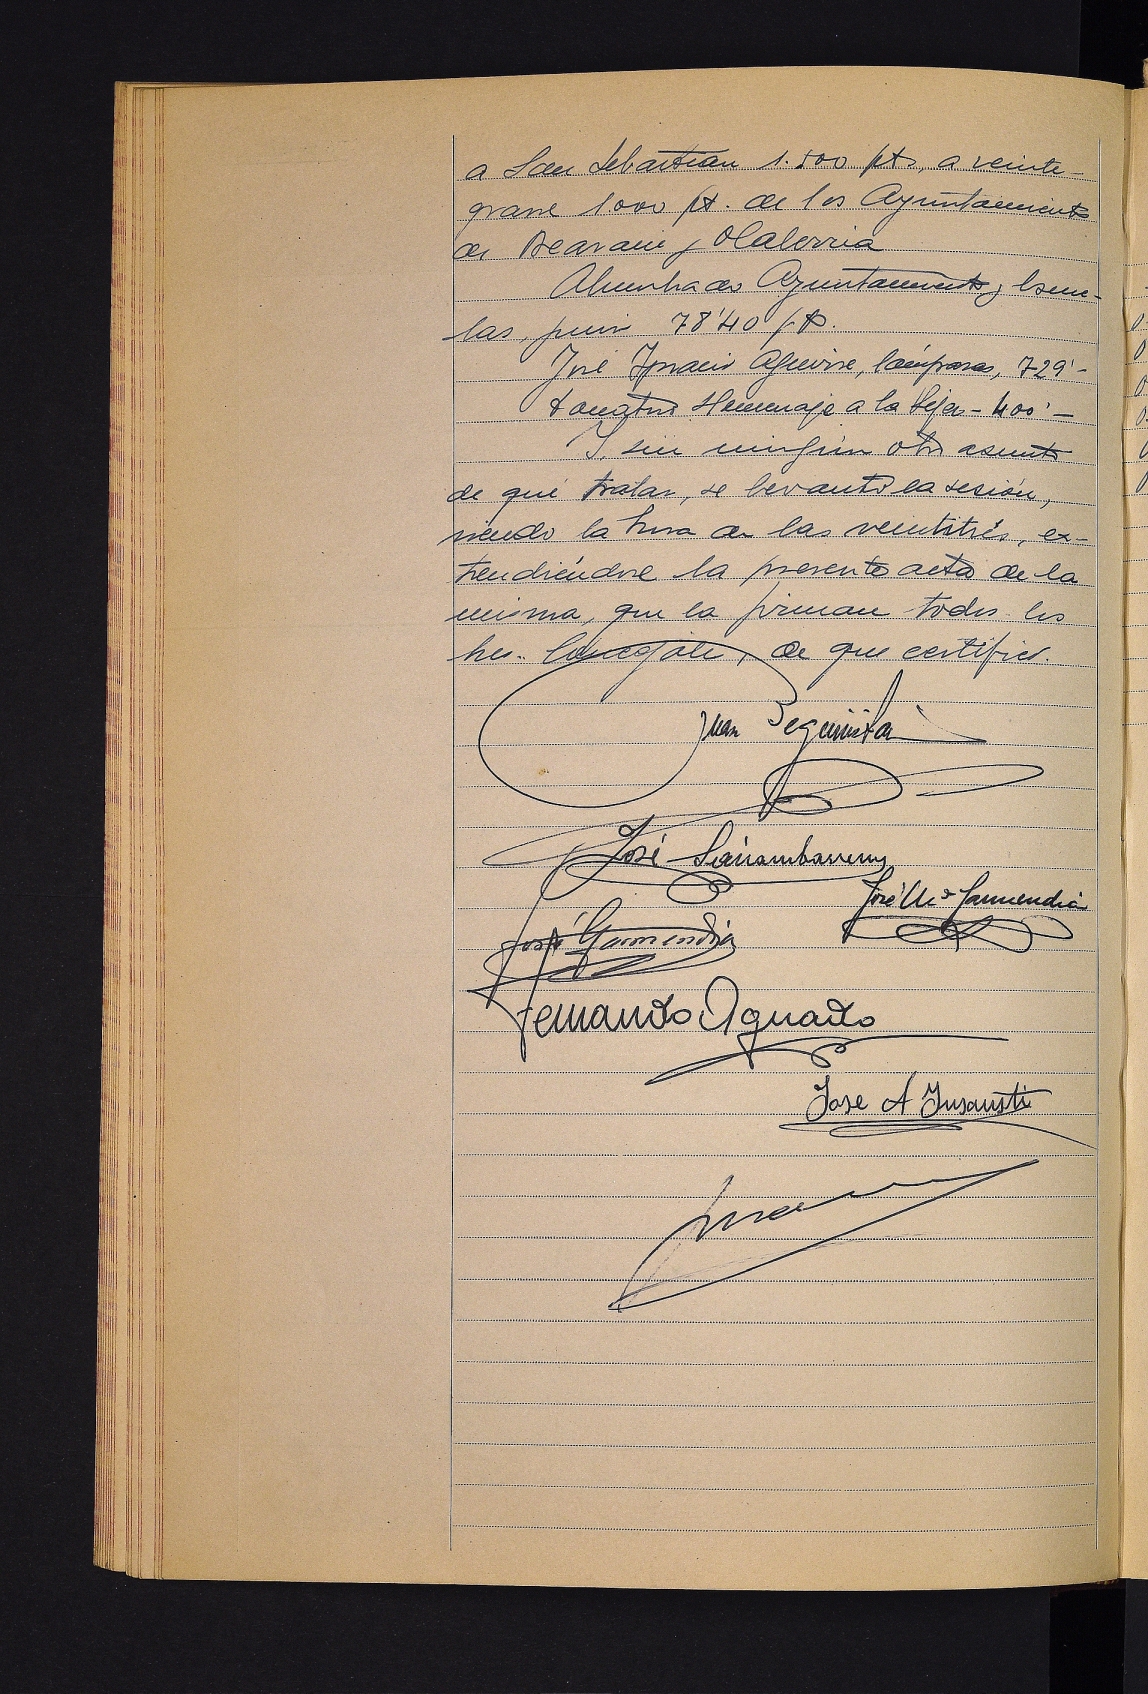 a San Sebastian 1.500 pts, a reinte-
grarse 1000 pt. de los Ayuntamientos
de Beasain y Olaberria
Alumbrado Ayuntamiento y Escue-
las, junio 78'40 pts.
José Ignacio Aguirre, lámparas, 729'-
Donativo Homenaje a la Vejez - 400'-
Y sin ningún otro asunto
de qué tratar, se levantó la sesión,
siendo la hora de las veintitrés, ex-
tendiéndose la presente acta de la
misma, que la firman todos los
Sres. Concejales, de que certifico.
Juan Beguiristain
José Sarrambarreny
José Mª Garmendia
José Garmendia
Fernando Aguado
Jose A Insausti